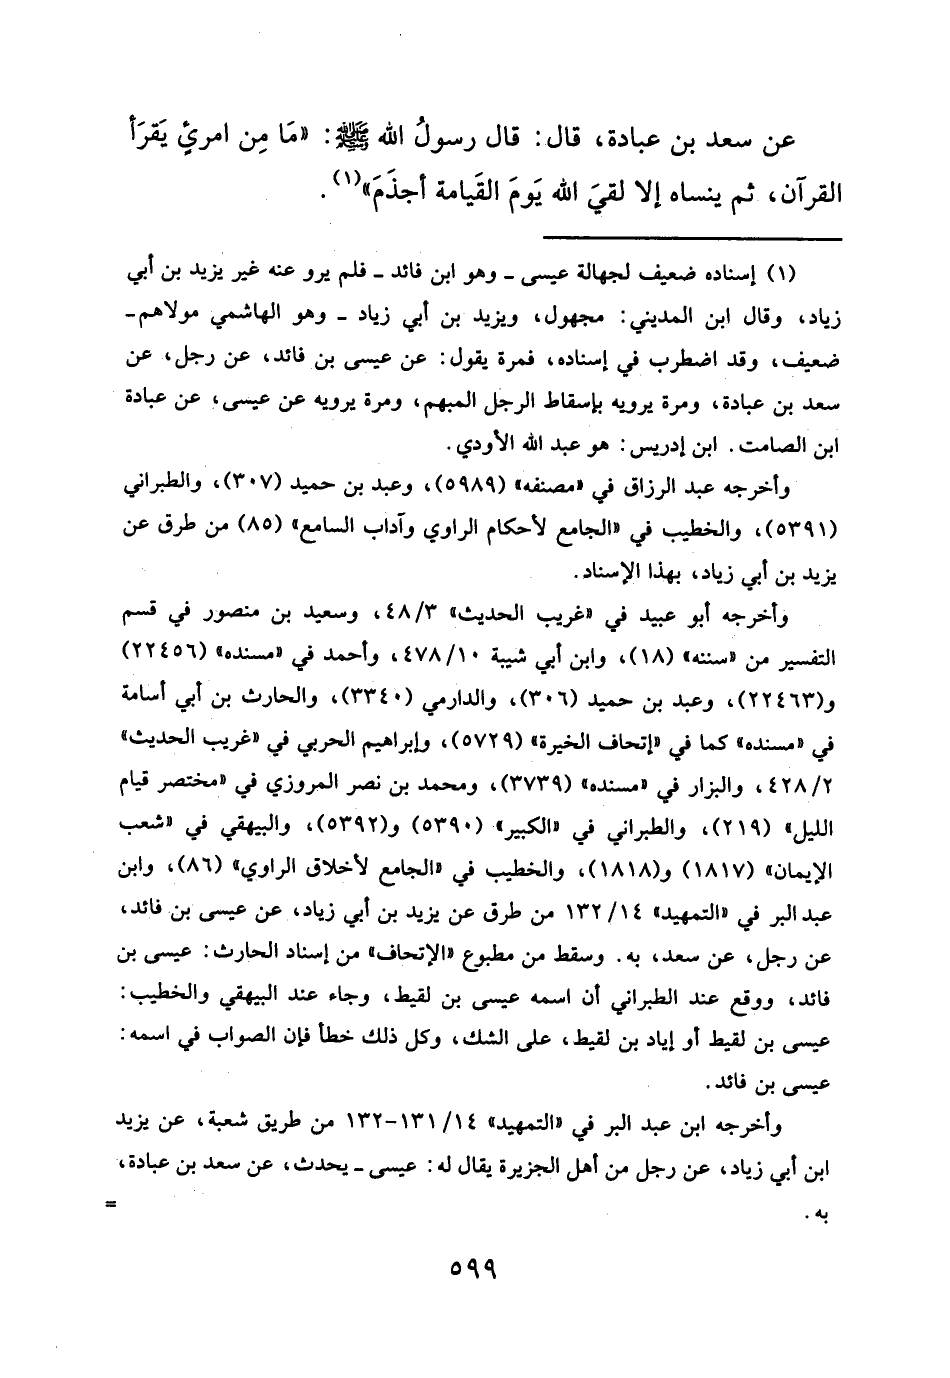 عن سعد بن عبادة، قال: قال رسولُ الله ﷺ: «مَا مِن امرئٍ يَقرَأ
القرآن، ثم ينساه إلا لقيَ الله يَومَ القَيامة أجذَمَ»(١).
(١) إسناده ضعيف لجهالة عيسى ـ وهو ابن فائد ـ فلم يرو عنه غير يزيد بن أبي
زياد، وقال ابن المديني: مجهول، ويزيد بن أبي زياد ـ وهو الهاشمي مولاهم ـ
ضعيف، وقد اضطرب في إسناده، فمرة يقول: عن عيسى بن فائد، عن رجل، عن
سعد بن عبادة، ومرة يرويه بإسقاط الرجل المبهم، ومرة يرويه عن عيسى، عن عبادة
ابن الصامت. ابن إدريس: هو عبد الله الأودي.
وأخرجه عبد الرزاق في «مصنفه» (٥٩٨٩)، وعبد بن حميد (٣٠٧)، والطبراني
(٥٣٩١)، والخطيب في «الجامع لأحكام الراوي وآداب السامع» (٨٥) من طرق عن
يزيد بن أبي زياد، بهذا الإسناد.
وأخرجه أبو عبيد في «غريب الحديث» ٤٨/٣، وسعيد بن منصور في قسم
التفسير من «سننه» (١٨)، وابن أبي شيبة ٤٧٨/١٠، وأحمد في «مسنده» (٢٢٤٥٦)
و(٢٢٤٦٣)، وعبد بن حميد (٣٠٦)، والدارمي (٣٣٤٠)، والحارث بن أبي أسامة
في «مسنده» كما في «إتحاف الخيرة» (٥٧٢٩)، وإبراهيم الحربي في «غريب الحديث»
٤٢٨/٢، والبزار في «مسنده» (٣٧٣٩)، ومحمد بن نصر المروزي في «مختصر قيام
الليل» (٢١٩)، والطبراني في «الكبير» (٥٣٩٠) و(٥٣٩٢)، والبيهقي في «شعب
الإيمان» (١٨١٧) و(١٨١٨)، والخطيب في «الجامع لأخلاق الراوي» (٨٦)، وابن
عبد البر في «التمهيد» ١٣٢/١٤ من طرق عن يزيد بن أبي زياد، عن عيسى بن فائد،
عن رجل، عن سعد، به. وسقط من مطبوع «الإتحاف» من إسناد الحارث: عيسى بن
فائد، ووقع عند الطبراني أن اسمه عيسى بن لقيط، وجاء عند البيهقي والخطيب:
عيسى بن لقيط أو إياد بن لقيط، على الشك، وكل ذلك خطأ فإن الصواب في اسمه:
عيسى بن فائد.
وأخرجه ابن عبد البر في «التمهيد» ١٣١/١٤-١٣٢ من طريق شعبة، عن يزيد
ابن أبي زياد، عن رجل من أهل الجزيرة يقال له: عيسى ـ يحدث، عن سعد بن عبادة،
به. =
٥٩٩